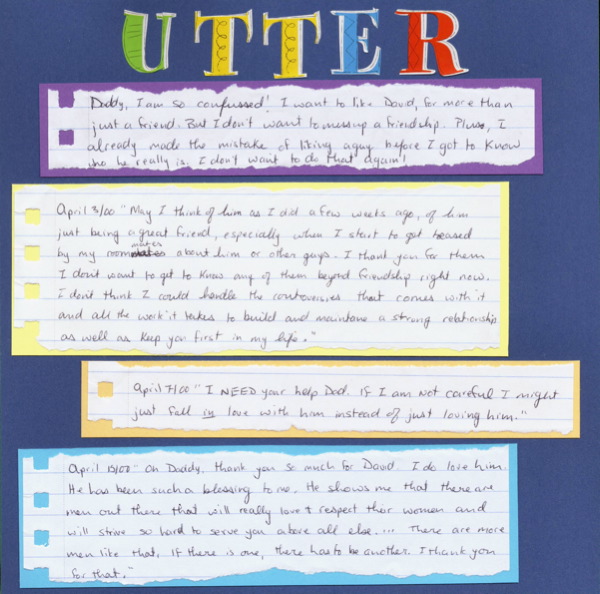 UTTER
Daddy, I am so confussed! I want to like David, for more than
just a friend. But I don't want to messup a friendship. Pluse, I
already made the mistake of liking aguy before I got to Know
who he really is. I don't want to do that again!
April 3/00 "May I think of him as I did a few weeks ago, of him
just being a great friend, especially when I start to get teased
by my roommates about him or other guys. I thank you for them
I don't want to get to Know any of them beyond friendship right now.
I don't think I could handle the controversies that comes with it
and all the work it takes to build and maintane a strong relationship
as well as Keep you first in my life."
April 7/00 "I NEED your help Dad. If I am not careful I might
just fall in love with him instead of just loving him."
April 15/00 - Oh Daddy, thank you so much for David. I do love him.
He has been such a blessing to me. He shows me that there are
men out there that will really love + respect thier women and
will strive so hard to serve you above all else.... There are more
men like that. If there is one, there has to be another. I thank you
for that."